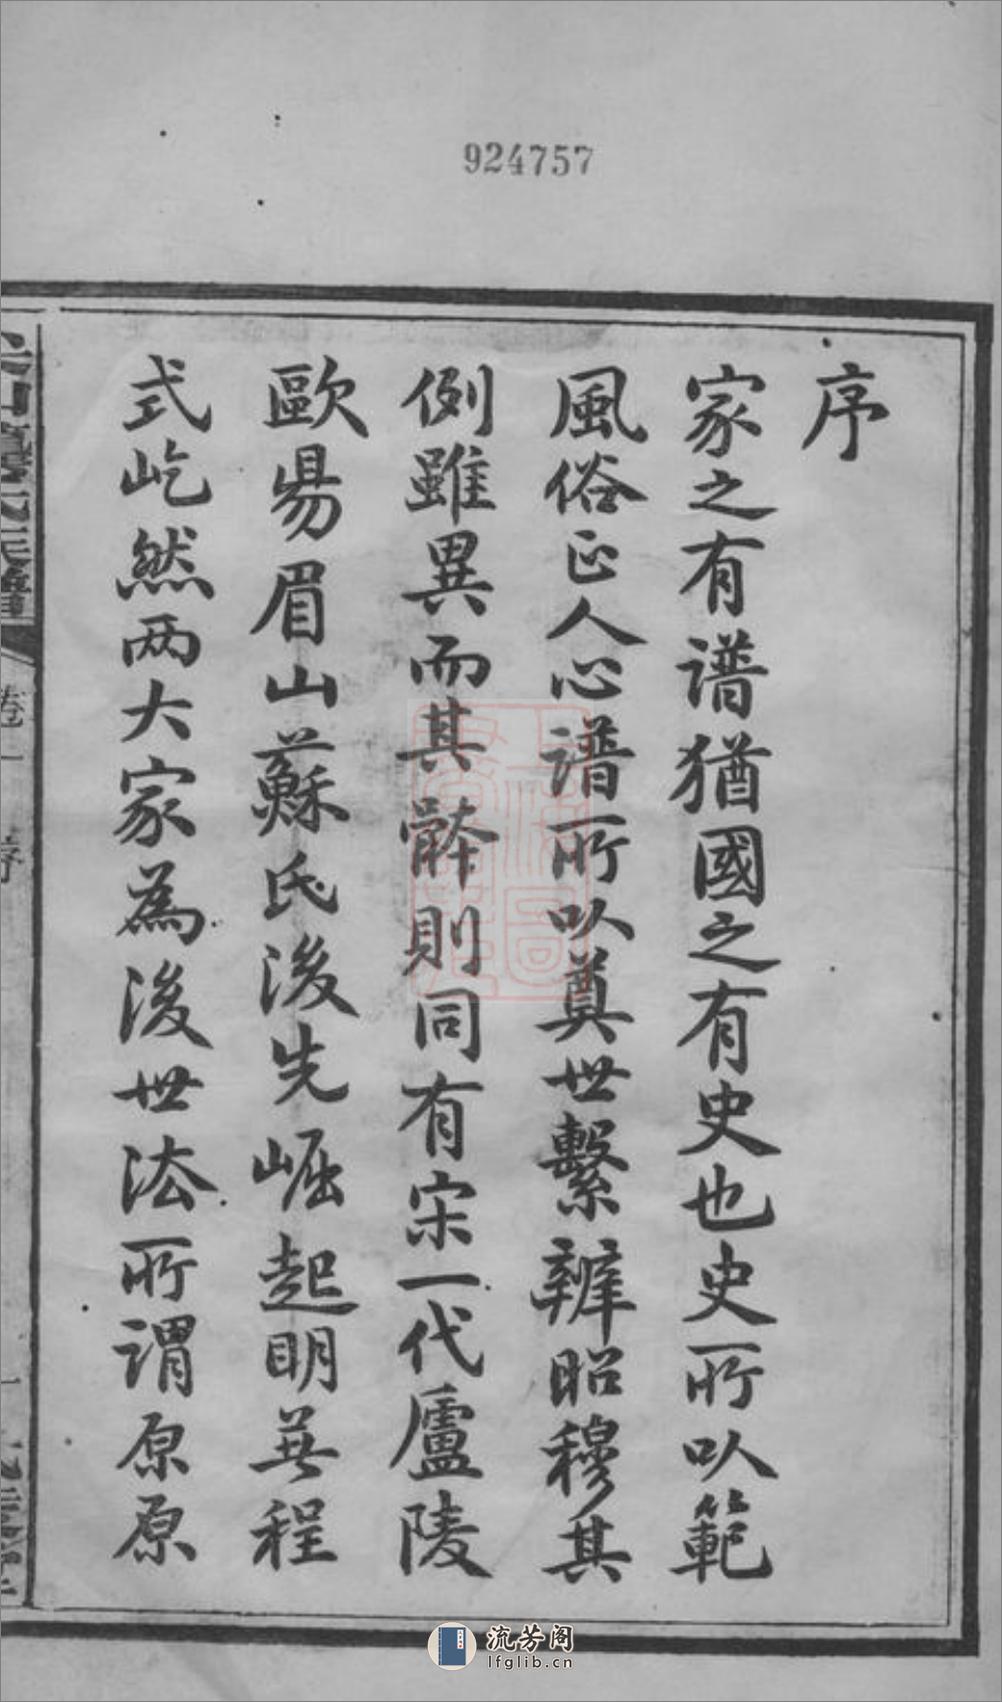 924757
序
家之有譜猶國之有史也史所以範
風俗正人心譜所以奠世繫辨昭穆其
例雖異而其體則同有宋一代廬陵
歐易眉山蘇氏後先崛起明其程
式屹然两大家為後世法所謂原原
卷一 序
流芳阁
lfglib.cn